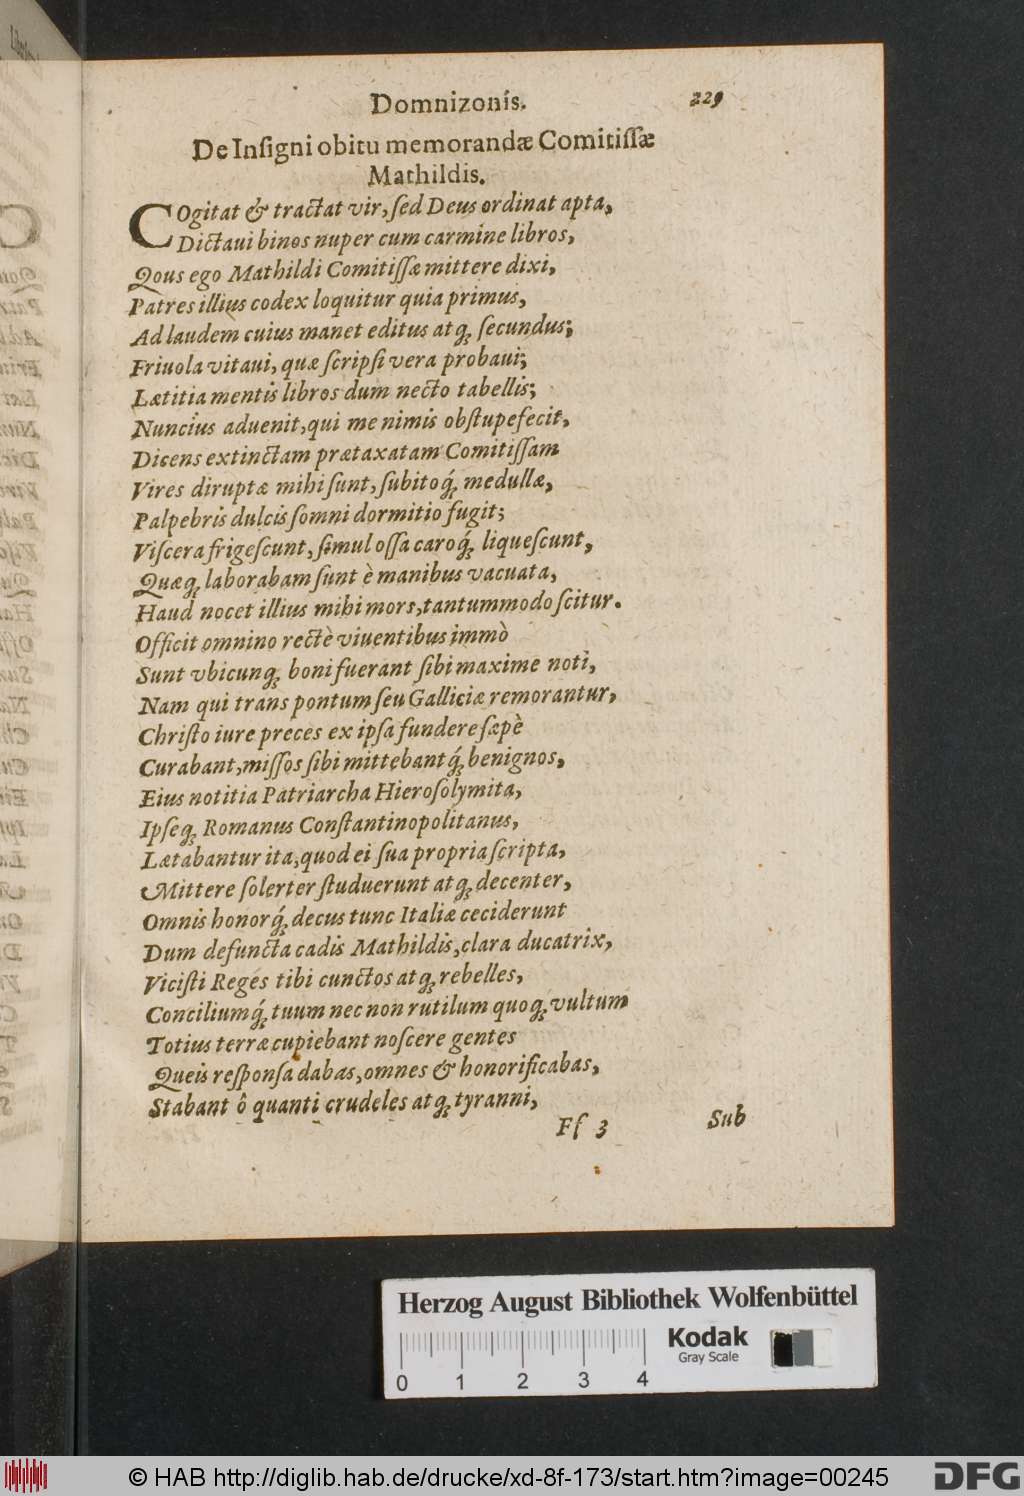 Domnizonis. 229
De Inſigni obitu memorandæ Comitiſſæ
Mathildis.
COgitat & tractat vir, ſed Deus ordinat apta,
Dictaui binos nuper cum carmine libros,
Qous ego Mathildi Comitiſſæ mittere dixi,
Patres illius codex loquitur quia primus,
Ad laudem cuius manet editus atq; ſecundus;
Friuola vitaui, quæ ſcripſi vera probaui;
Lætitia mentis libros dum necto tabellis;
Nuncius aduenit, qui me nimis obſtupefecit,
Dicens extinctam prætaxatam Comitiſſam
Vires diruptæ mihi ſunt, ſubitoq́; medullæ,
Palpebris dulcis ſomni dormitio fugit;
Viſcera frigeſcunt, ſimul oſſa caroq́; liqueſcunt,
Quæq; laborabam ſunt è manibus vacuata,
Haud nocet illius mihi mors, tantummodo ſcitur.
Officit omnino rectè viuentibus immò
Sunt vbicunq; boni fuerant ſibi maxime noti,
Nam qui trans pontum ſeu Galliciæ remorantur,
Chriſto iure preces ex ipſa fundere ſæpè
Curabant, miſſos ſibi mittebantq́; benignos,
Eius notitia Patriarcha Hieroſolymita,
Ipſeq; Romanus Conſtantinopolitanus,
Lætabantur ita, quod ei ſua propria ſcripta,
Mittere ſolerter ſtuduerunt atq; decenter,
Omnis honorq́; decus tunc Italiæ ceciderunt
Dum defuncta cadis Mathildis, clara ducatrix,
Viciſti Reges tibi cunctos atq; rebelles,
Conciliumq́; tuum nec non rutilum quoq; vultum
Totius terræ cupiebant noſcere gentes
Queis reſponſa dabas, omnes & honorificabas,
Stabant ô quanti crudeles atq; tyranni,
Ff 3 Sub
Herzog August Bibliothek Wolfenbüttel
Kodak
Gray Scale
0 1 2 3 4
© HAB http://diglib.hab.de/drucke/xd-8f-173/start.htm?image=00245
DFG